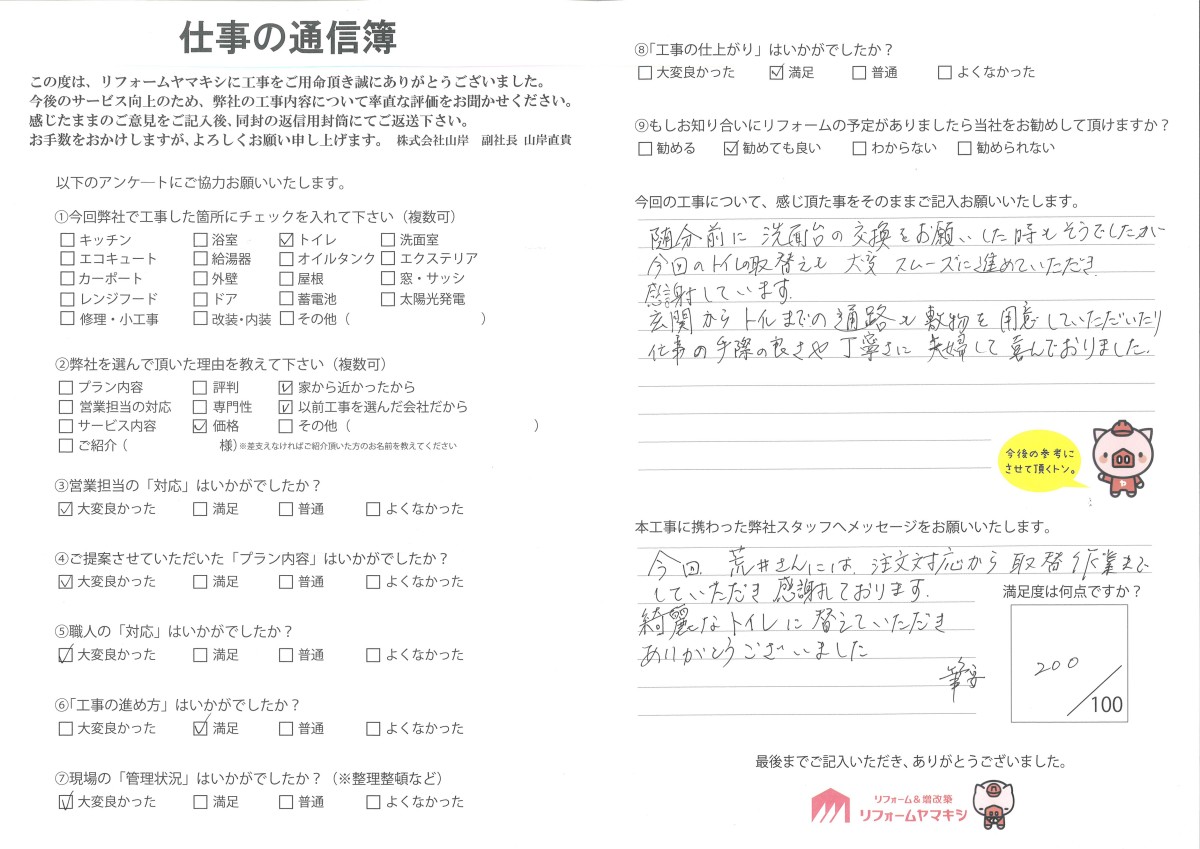 仕事の通信簿
この度は、リフォームヤマキシに工事をご用命頂き誠にありがとうございました。
今後のサービス向上のため、弊社の工事内容について率直な評価をお聞かせください。
感じたままのご意見をご記入後、同封の返信用封筒にてご返送下さい。
お手数をおかけしますが、よろしくお願い申し上げます。 株式会社山岸 副社長 山岸直貴
以下のアンケートにご協力お願いいたします。
①今回弊社で工事した箇所にチェックを入れて下さい（複数可）
□ キッチン □ 浴室 ☑ トイレ □ 洗面室
□ エコキュート □ 給湯器 □ オイルタンク □ エクステリア
□ カーポート □ 外壁 □ 屋根 □ 窓・サッシ
□ レンジフード □ ドア □ 蓄電池 □ 太陽光発電
□ 修理・小工事 □ 改装・内装 □ その他（ ）
②弊社を選んで頂いた理由を教えて下さい（複数可）
□ プラン内容 □ 評判 ☑ 家から近かったから
□ 営業担当の対応 □ 専門性 ☑ 以前工事を選んだ会社だから
□ サービス内容 ☑ 価格 □ その他（ ）
□ ご紹介（ 様）※差支えなければご紹介頂いた方のお名前を教えてください
③営業担当の「対応」はいかがでしたか？
☑ 大変良かった □ 満足 □ 普通 □ よくなかった
④ご提案させていただいた「プラン内容」はいかがでしたか？
☑ 大変良かった □ 満足 □ 普通 □ よくなかった
⑤職人の「対応」はいかがでしたか？
☑ 大変良かった □ 満足 □ 普通 □ よくなかった
⑥「工事の進め方」はいかがでしたか？
□ 大変良かった ☑ 満足 □ 普通 □ よくなかった
⑦現場の「管理状況」はいかがでしたか？（※整理整頓など）
☑ 大変良かった □ 満足 □ 普通 □ よくなかった
⑧「工事の仕上がり」はいかがでしたか？
□ 大変良かった ☑ 満足 □ 普通 □ よくなかった
⑨もしお知り合いにリフォームの予定がありましたら当社をお勧めして頂けますか？
□ 勧める ☑ 勧めても良い □ わからない □ 勧められない
今回の工事について、感じ頂た事をそのままご記入お願いいたします。
随分前に 洗面台の交換をお願いした時もそうでしたが
今回のトイレの取替えも 大変 スムーズに進めていただき
感謝しています.
玄関からトイレまでの通路も敷物を用意していただいたり
仕事の手際の良さや丁寧さに 夫婦して喜んでおりました.
今後の参考に
させて頂くトン。
本工事に携わった弊社スタッフへメッセージをお願いいたします。
今回 荒井さんには、注文対応から 取替え作業まで
していただき 感謝しております.
綺麗なトイレに 替えていただき
ありがとうございました
満足度は何点ですか？
200
/100
最後までご記入いただき、ありがとうございました。
リフォーム&増改築
リフォームヤマキシ